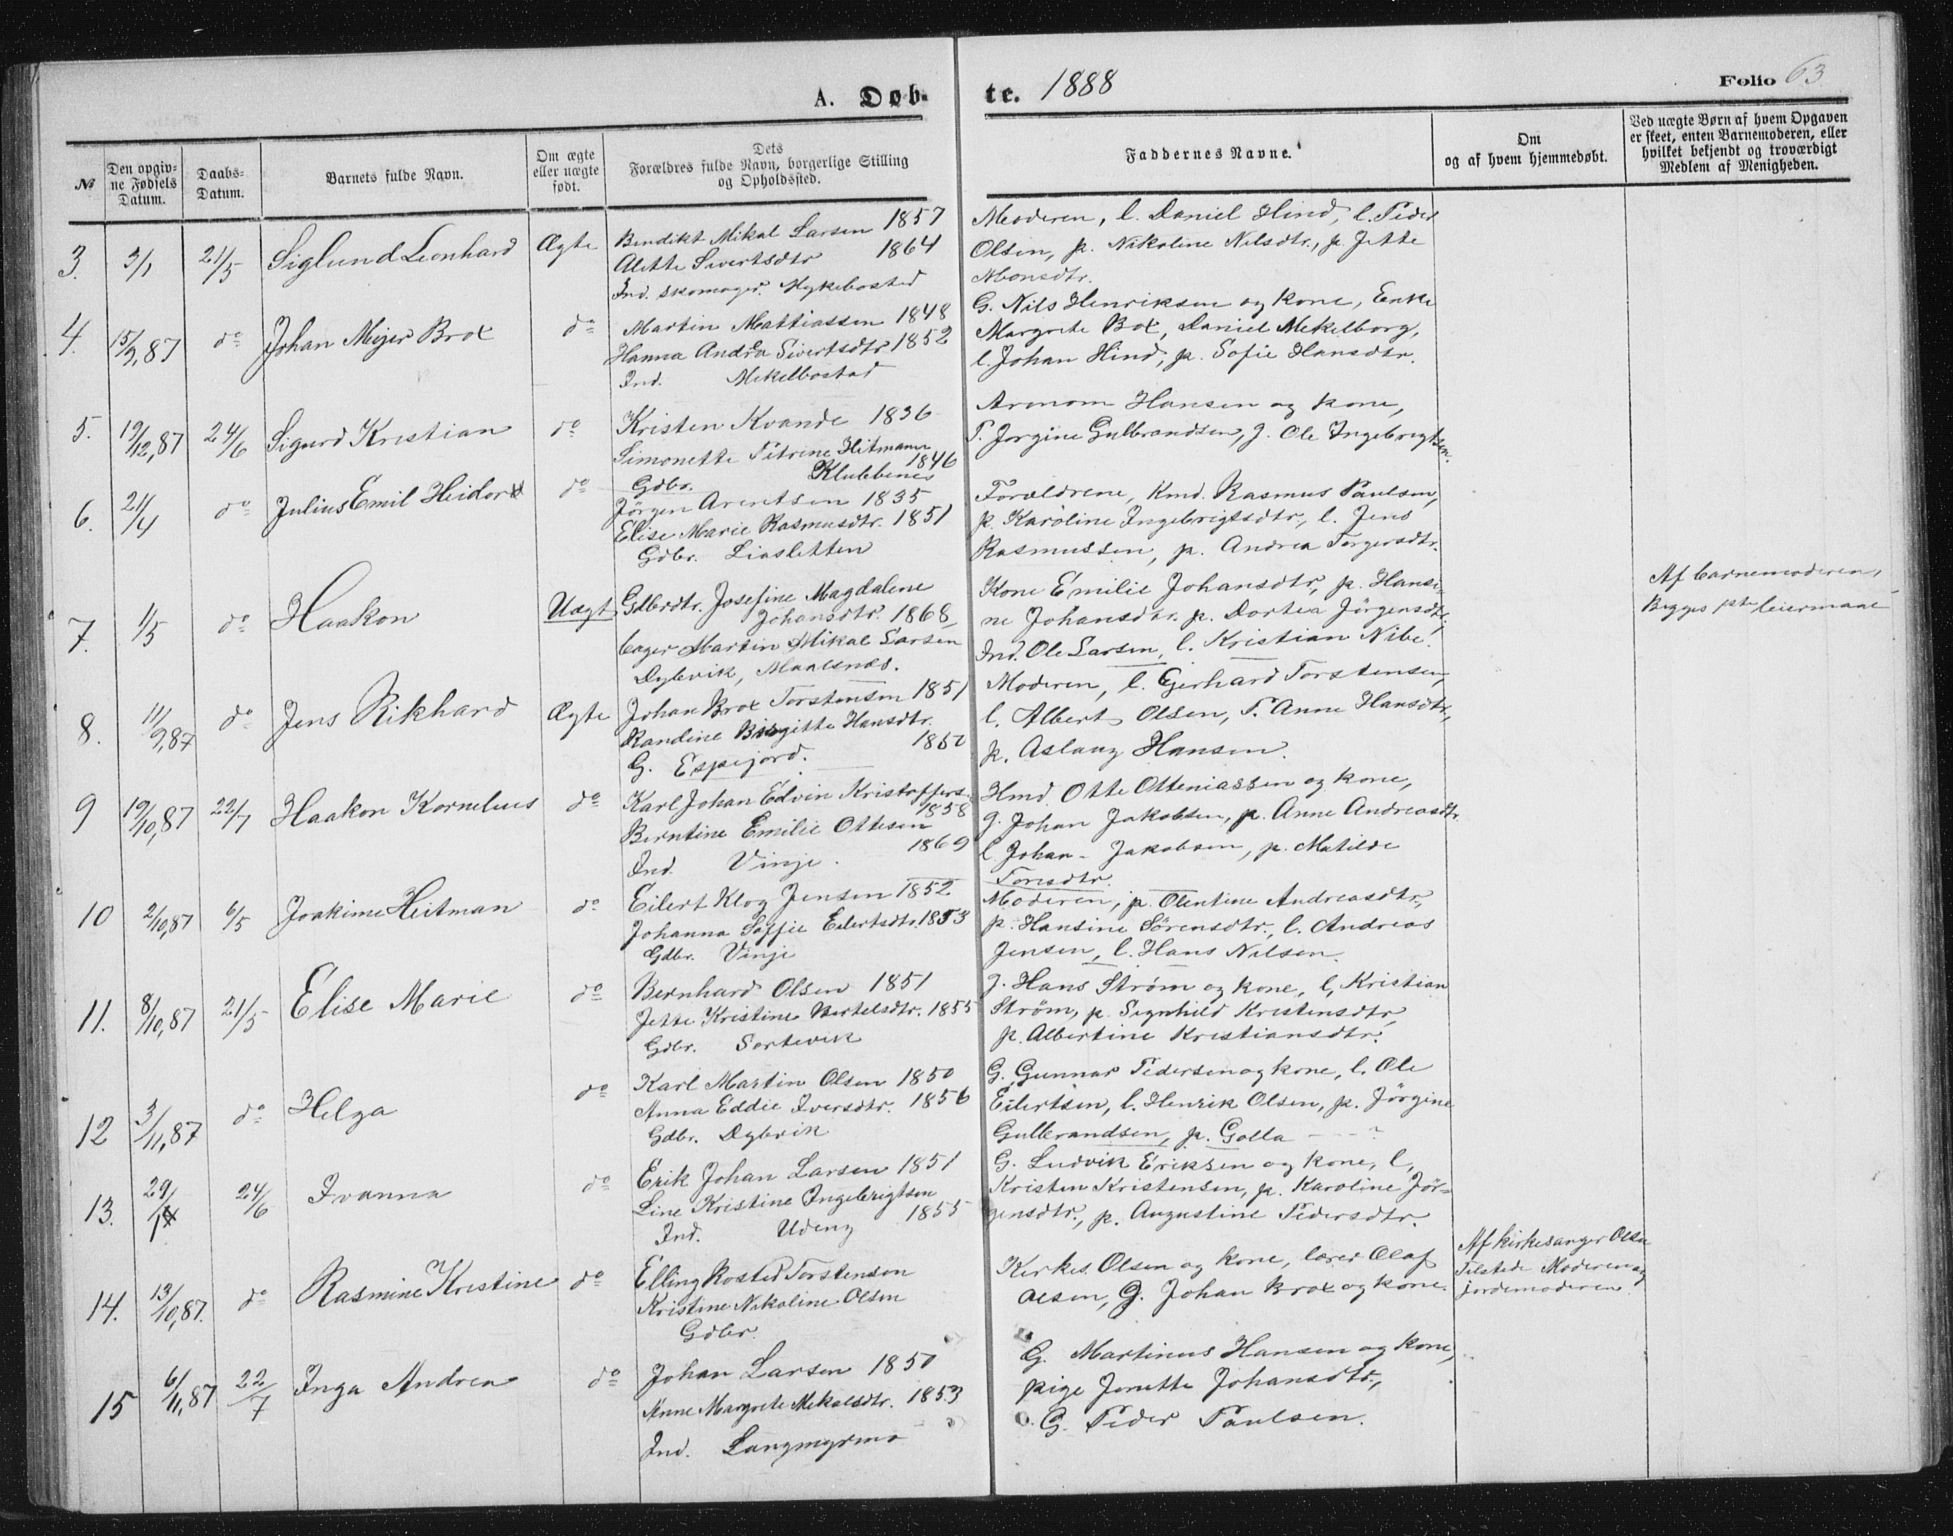 A. Døbte. 1888
Folio 63
№
Den opgivne Fødsels Datum.
Daabs-Datum.
Barnets fulde Navn.
Om ægte eller uægte født.
Dets Forældres fulde Navn, borgerlige Stilling og Opholdssted.
Faddernes Navne.
Om og af hvem hjemmedøbt.
Ved uægte Børn af hvem Opgaven er skeet, enten Barnemoderen, eller hvilket bekjendt og troværdigt Medlem af Menigheden.
3. 3/1 21/5 Siglund Leonhard Ægte
Bendikt Mikal Larsen 1857
Alette Sivertsdtr 1864
Ind. skomager. Mykebostad
Moderen, l. Daniel Hind, l. Peder
Olsen, p. Nikoline Nilsdtr., p. Jette
Monsdtr.
4. 15/2,87 do Johan Mejer Brox do
Martin Mattiassen 1848
Hanna Andrea Sivertsdtr 1852
Ind. Mekelbostad
G. Nils Henriksen og kone, Enke
Margrete Box, Daniel Mekelborg,
l. Johan Hind, p. Sofie Hansdtr.
5. 19/12,87 24/6 Sigurd Kristian do
Kristen Kvande 1836
Simonette Petrine Heitmann
1846
Gdbr. Klubbenes
Aronom Hansen og kone,
P. Jorgine Gulbrandsen, J. Ole Ingebrigtsen.
6. 21/4 do Julius Emil Heidor do
Jörgen Arentsen 1835
Elise Marie Rasmusdtr. 1851
Gdbr. Liasletten
Forældrene, Kmd. Rasmus Paulsen,
p. Karoline Ingebrigtsdtr., l. Jens
Rasmussen, p. Andrea Torgersdtr.
7. 1/5 do Haakon Uægt
Gdbrdtr. Josefine Magdalene
Johansdtr. 1868,
Martin Mikal Larsen
Dybvik, Maalsnes.
Kone Emilie Johansdtr, p. Hansi-
ne Johansdtr. p. Dortea Jörgensdtr,
Ind. Ole Larsen, l. Kristian Nibe.
Af barnemoderen,
Begges 1ste leiermaal
8. 11/9,87 do Jens Rikhard Ægte
Johan Brox Torstensen 1851
Randine Birgitte Hansdtr.
1850
G. Espejord.
Moderen, l. Gerhard Torstensen,
l. Albert Olsen, P. Anne Hansdtr,
p. Aslaug Hansen.
9 19/10,87 22/7 Haakon Kornelius do
Karl Johan Edvin Kristoffers.
1858
Berntine Emilie Ottesen
1869
Ind. Vinje.
Hmd. Otte Otteniassen og kone,
g. Johan Jakobsen, p. Anne Andreasdtr.
l. Johan Jakobsen, p. Matilde
Toresdtr.
10 2/10,87 6/5 Joakime Heitman do
Eilert Klog Jensen 1852
Johanna Soffie Eilertsdtr. 1853
Gdbr. Vinje
Moderen, p. Olentine Andreasdtr.,
p. Hansine Sörensdtr., l. Andreas
Jensen, l. Hans Nilsen.
11. 8/10,87 21/5 Elise Marie do
Bernhard Olsen 1851
Jette Kristine Bertelsdtr. 1855
Gdbr. Sortevik
J. Hans Strøm og kone, l. Kristian
Strøm, p. Signhild Kristensdtr,
p. Albertine Kristiansdtr.
12 3/11,87 do Helga do
Karl Martin Olsen 1850
Anna Eddie Iversdtr. 1856
Gdbr. Dybvik
G. Gunnar Pedersen og kone, l. Ole
Eilertsen, l. Henrik Olsen, p. Jörgine
Gulbrandsen, p. Golla - - - ?
13. 29/1 24/6 Ivanna do
Erik Johan Larsen 1851
Line Kristine Ingebrigtsen
1855
Ind. Udeng
G. Ludvik Eriksen og kone, l.
Kristen Kristensen, p. Karoline Jör-
gensdtr., p. Augustine Pedersdtr.
14. 13/10,87. do Rasmine Kristine do
Elling Rosted Torstensen
Kristine Nikoline Olsen
Gdbr.
Kirkes. Olsen og kone, lærer Olaf
Olsen, G. Johan Brox og kone.
Af kirkesanger Olsen
Tilstede Moderen og
jordemoderen.
15 6/11,87 22/7 Inga Andrea do
Johan Larsen 1850
Anne Margrete Mekalsdtr. 1853
Ind. Langmyrmo
G. Martinus Hansen og kone,
pige Jonette Johansdtr,
G. Peder Paulsen.